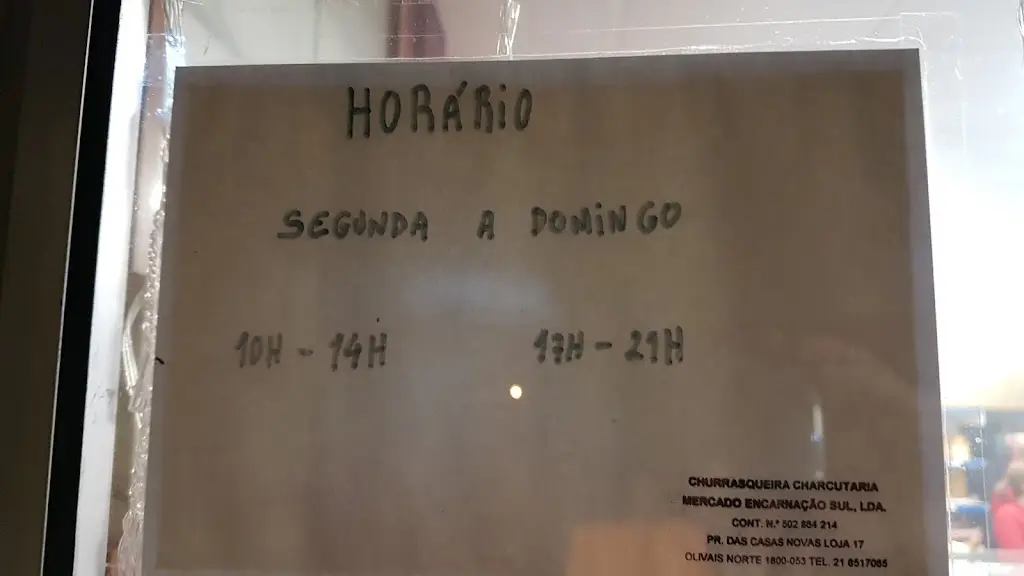 HORÁRIO
SEGUNDA A DOMINGO
10H - 14H 17H - 21H
CHURRASQUEIRA CHARCUTARIA
MERCADO ENCARNAÇÃO SUL, LDA.
CONT. N.º 502 884 214
PR. DAS CASAS NOVAS LOJA 17
OLIVAIS NORTE 1800-053 TEL. 21 8517085